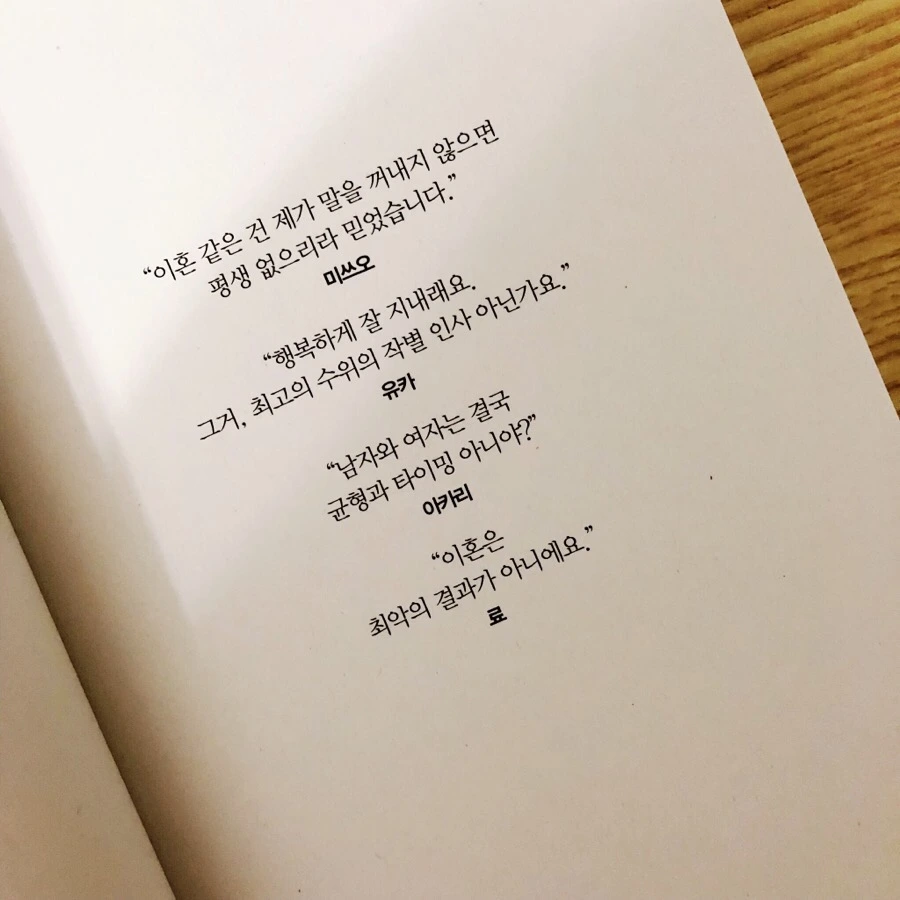 “이혼 같은 건 제가 말을 꺼내지 않으면
평생 없으리라 믿었습니다.”
미쓰오
“행복하게 잘 지내래요.
그거, 최고의 수위의 작별 인사 아닌가요.”
유카
“남자와 여자는 결국
균형과 타이밍 아니야?”
아카리
“이혼은
최악의 결과가 아니에요.”
료